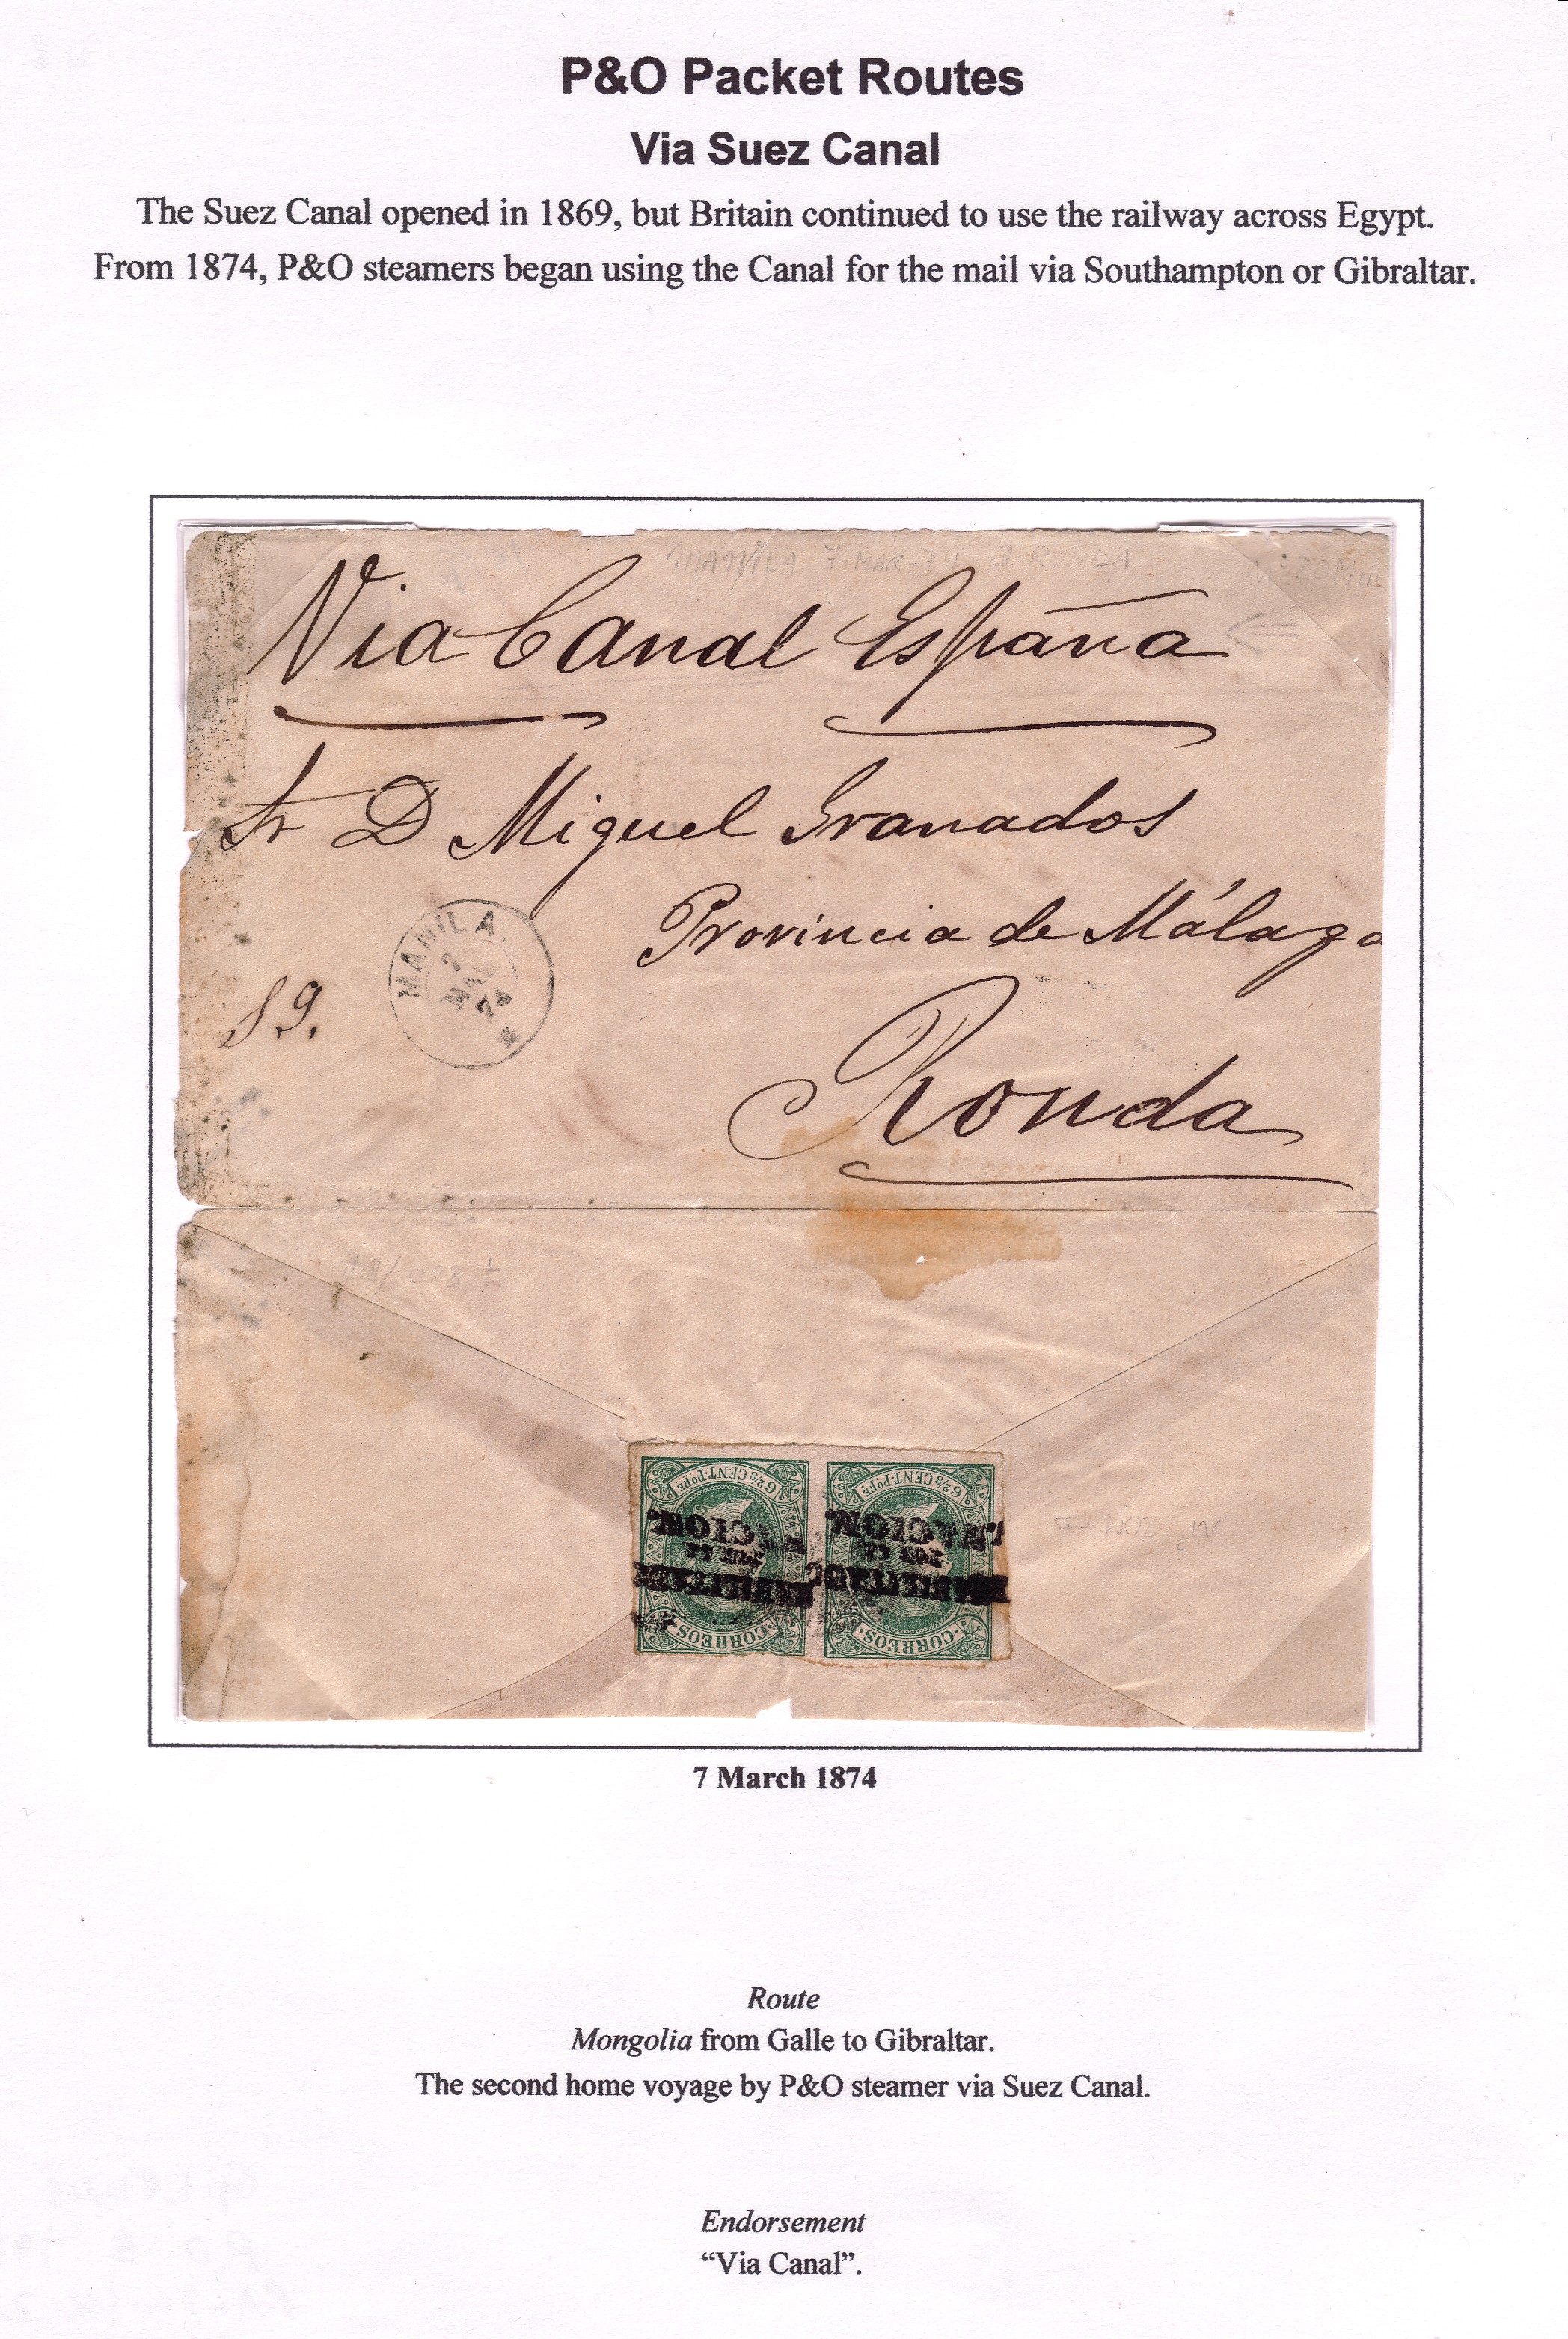 P&O Packet Routes
Via Suez Canal
The Suez Canal opened in 1869, but Britain continued to use the railway across Egypt.
From 1874, P&O steamers began using the Canal for the mail via Southampton or Gibraltar.
MANILA 7 MAR-74 a RONDA
Via Canal España
Sr D Miguel Granados
Provincia de Málaga
MANILA
7
MAR
74
89.
Ronda
6 2/8 CENT. Po Fe 6 2/8 CENT. Po Fe
CORREOS CORREOS
HABILITADO HABILITADO
POR LA POR LA
NACION. NACION.
7 March 1874
Route
Mongolia from Galle to Gibraltar.
The second home voyage by P&O steamer via Suez Canal.
Endorsement
“Via Canal”.